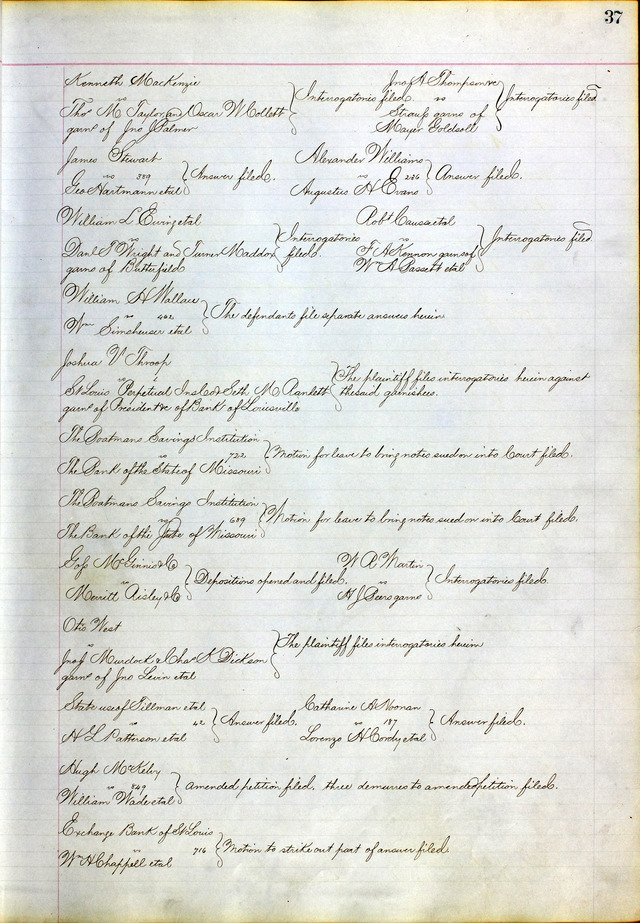 37
Kenneth MacKenzie
vs
Thos M. Taylor and Oscar W Collett
garns of Jno J Palmer
Interrogatories filed.
Jno A Thompson &c
vs
Strauss garns of
Mayer Goldsoll
Interrogatories filed
James Stewart
vs 389
Geo Hartmann etal
Answer filed.
Alexander Williams
vs 246
Augustus H Evans
Answer filed.
William L Ewing etal
vs
Danl T Wright and Turner Maddox
garns of Butterfield
Interrogatories
filed.
Robt Causs etal
vs
F A Kennon garns of
Wm A Bassett etal
Interrogatories filed
William H Wallace
vs 402
Wm Simsheuser etal
The defendants file separate answers herein
Joshua V Throop
vs
St Louis Perpetual Ins Co & Seth M Ranlett
garns of President &c of Bank of Louisville
The plaintiff files interrogatories herein against
the said garnishees.
The Boatmans Savings Institution
vs 722
The Bank of the State of Missouri
Motion for leave to bring notes sued on into Court filed.
The Boatmans Savings Institution
vs 689
The Bank of the State of Missouri
Motion for leave to bring notes sued on into Court filed.
Goss McGinnis & Co
vs
Merritt Risley & Co
Depositions opened and filed.
W R Martin
vs
H J Peers garns
Interrogatories filed.
Otis West
vs
Jno J Murdock & Chas K Dickson
garns of Jno Levin etal
The plaintiff files interrogatories herein
State use of Tillman etal
vs 42
H L Patterson etal
Answer filed.
Catharine A Noonan
vs 187
Lorenzo H Cordry etal
Answer filed.
Hugh McKelvy
vs 849
William Wade etal
Amended petition filed, three demurrers to amended petition filed.
Exchange Bank of St Louis
vs 716
Wm H Chappell etal
Motion to strike out part of answer filed